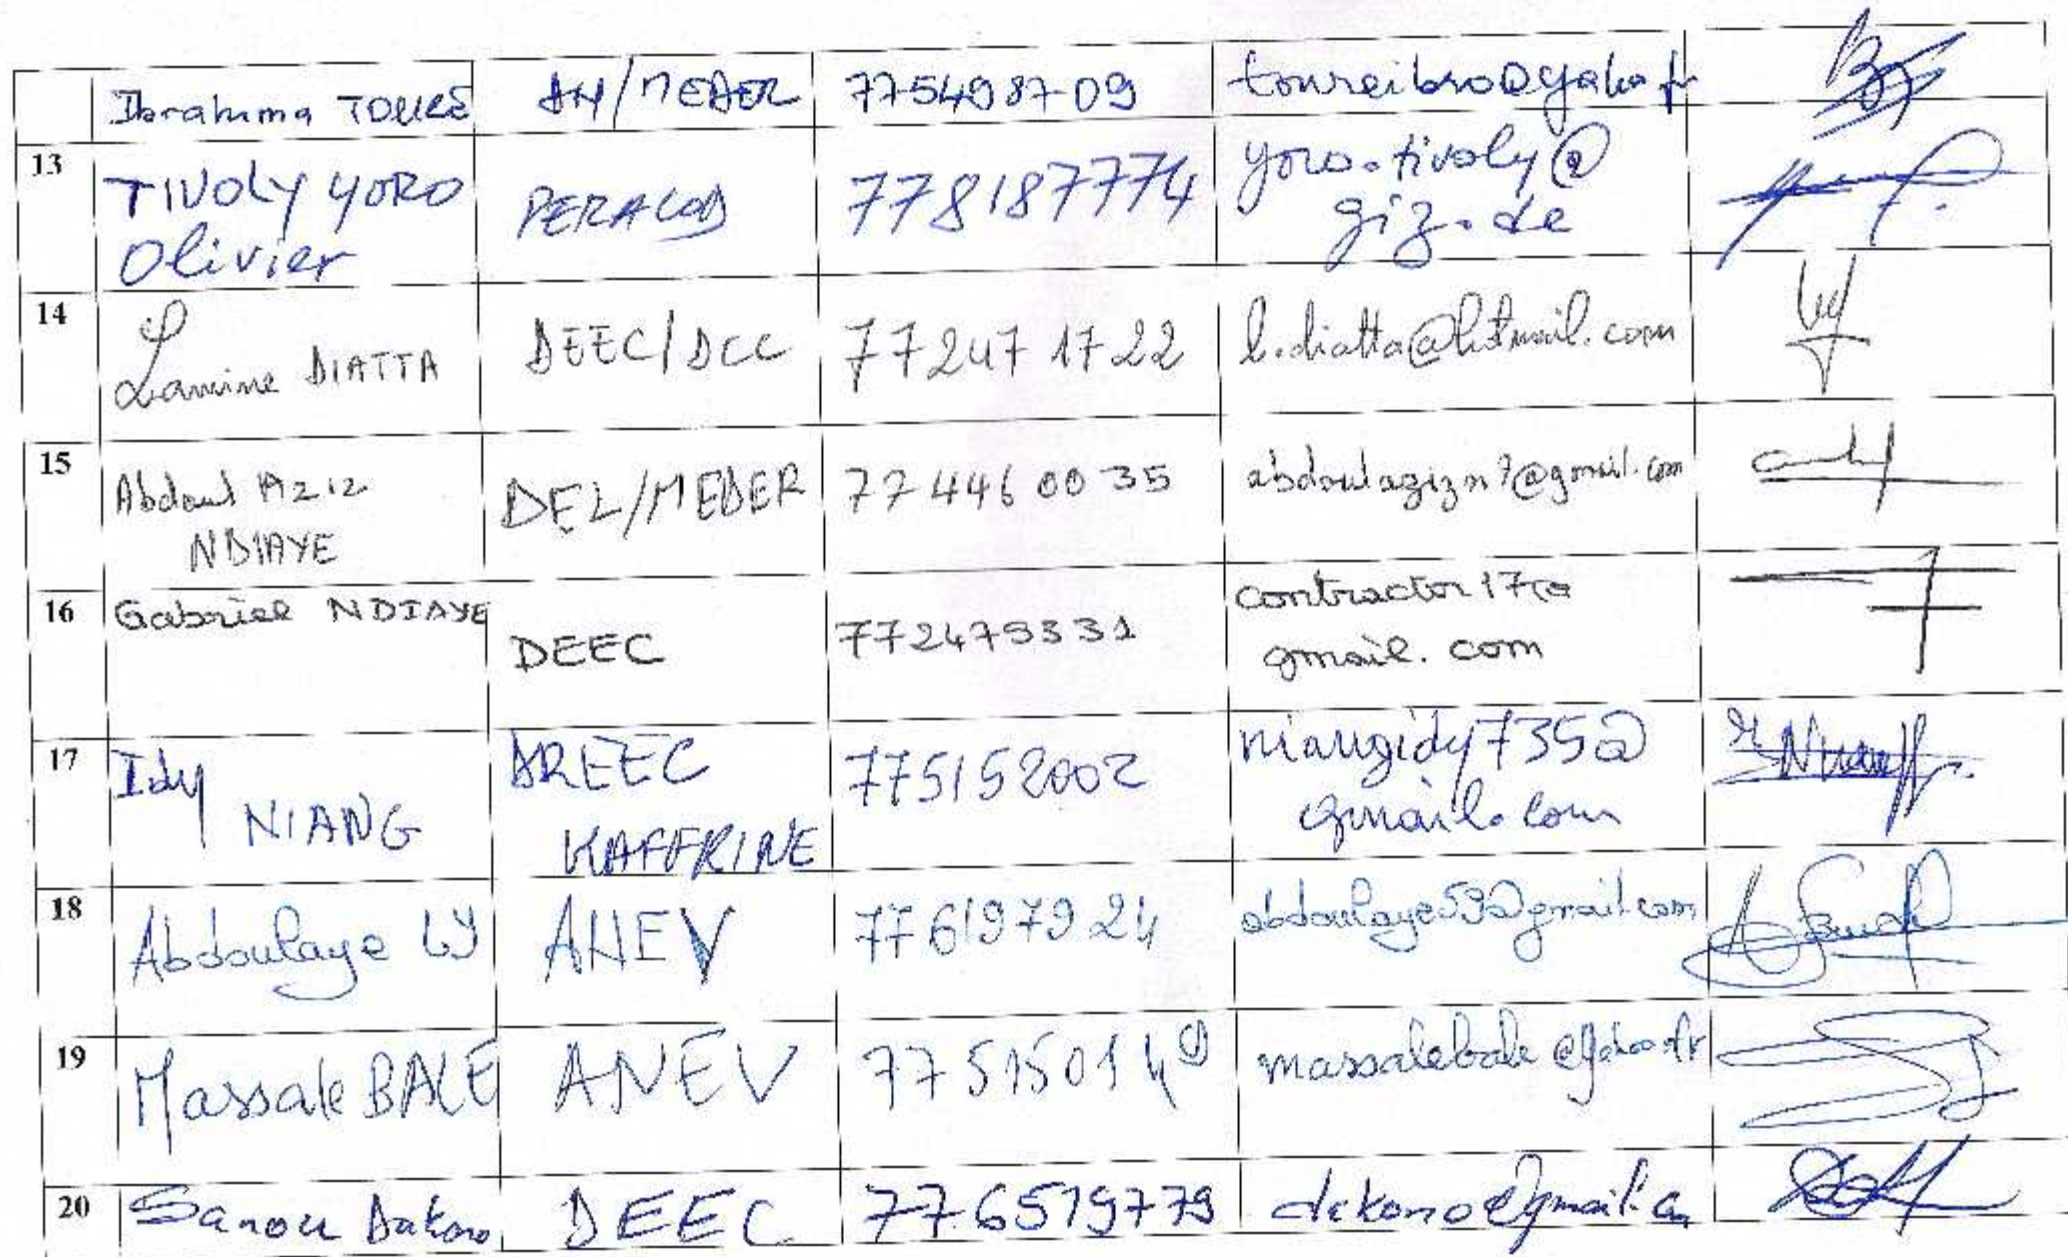 Ibrahima TOURÉ DH/MEDER 775498709 toureibro@yahoo.fr
13 TIVOLY YORO PERACOD 778187774 yoro.tivoly@
Olivier giz.de
14 Lamine DIATTA DEEC/DCC 77 247 17 22 l.diatta@hotmail.com
15 Abdoul Aziz DEL/MEDER 77 446 00 35 abdoulazizn7@gmail.com
NDIAYE
16 Gabriel NDIAYE DEEC 772479331 contractor17@
gmail.com
17 Idy DREEC 775152002 niangidy735@
NIANG KAFFRINE gmail.com
18 Abdoulaye LY ANEV 776197924 abdoulaye59@gmail.com
19 Massale BALE ANEV 77 515 01 49 massalebale@yahoo.fr
20 Sanou Dakono DEEC 776519779 dekono@gmail.com